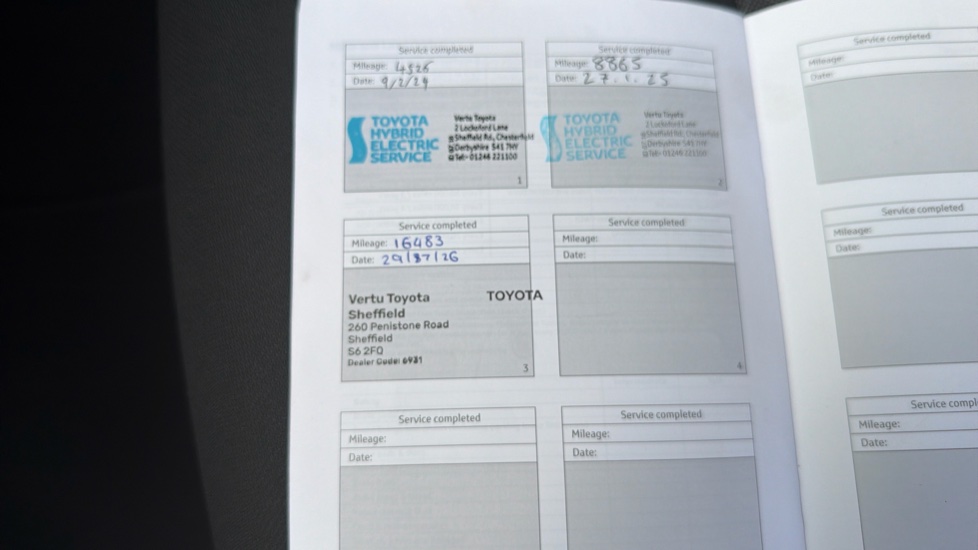 Service completed
Mileage: 4526
Date: 9/2/24
TOYOTA
HYBRID
ELECTRIC
SERVICE
Vertu Toyota
2 Lockoford Lane
Sheffield Rd, Chesterfield
Derbyshire S41 7HY
Tel: 01246 221300
1
Service completed
Mileage: 8865
Date: 27.1.25
TOYOTA
HYBRID
ELECTRIC
SERVICE
Vertu Toyota
2 Lockoford Lane
Sheffield Rd, Chesterfield
Derbyshire S41 7HY
Tel: 01246 221300
2
Service completed
Mileage: 16483
Vertu Toyota
TOYOTA
Sheffield
260 Penistone Road
Sheffield
S6 2FQ
3
Service completed
Mileage:
Date:
4
Service completed
Mileage:
Date:
Service completed
Mileage:
Date:
Service completed
Mileage:
Date:
Service completed
Mileage:
Date:
Service compl
Mileage:
Date: